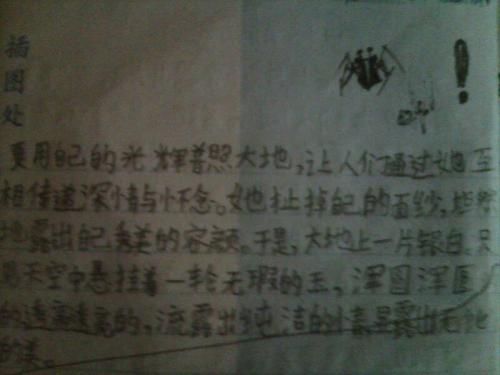 插图处
要用自己的光辉普照大地，让人们通过她互
相传递深情与怀念。她扯掉自己的面纱，
地露出自己秀美的容颜。于是，大地上一片银白，只
见天空中悬挂着一轮无瑕的玉，浑圆浑圆
的，流露出纯洁的情，显露出无比
的美。